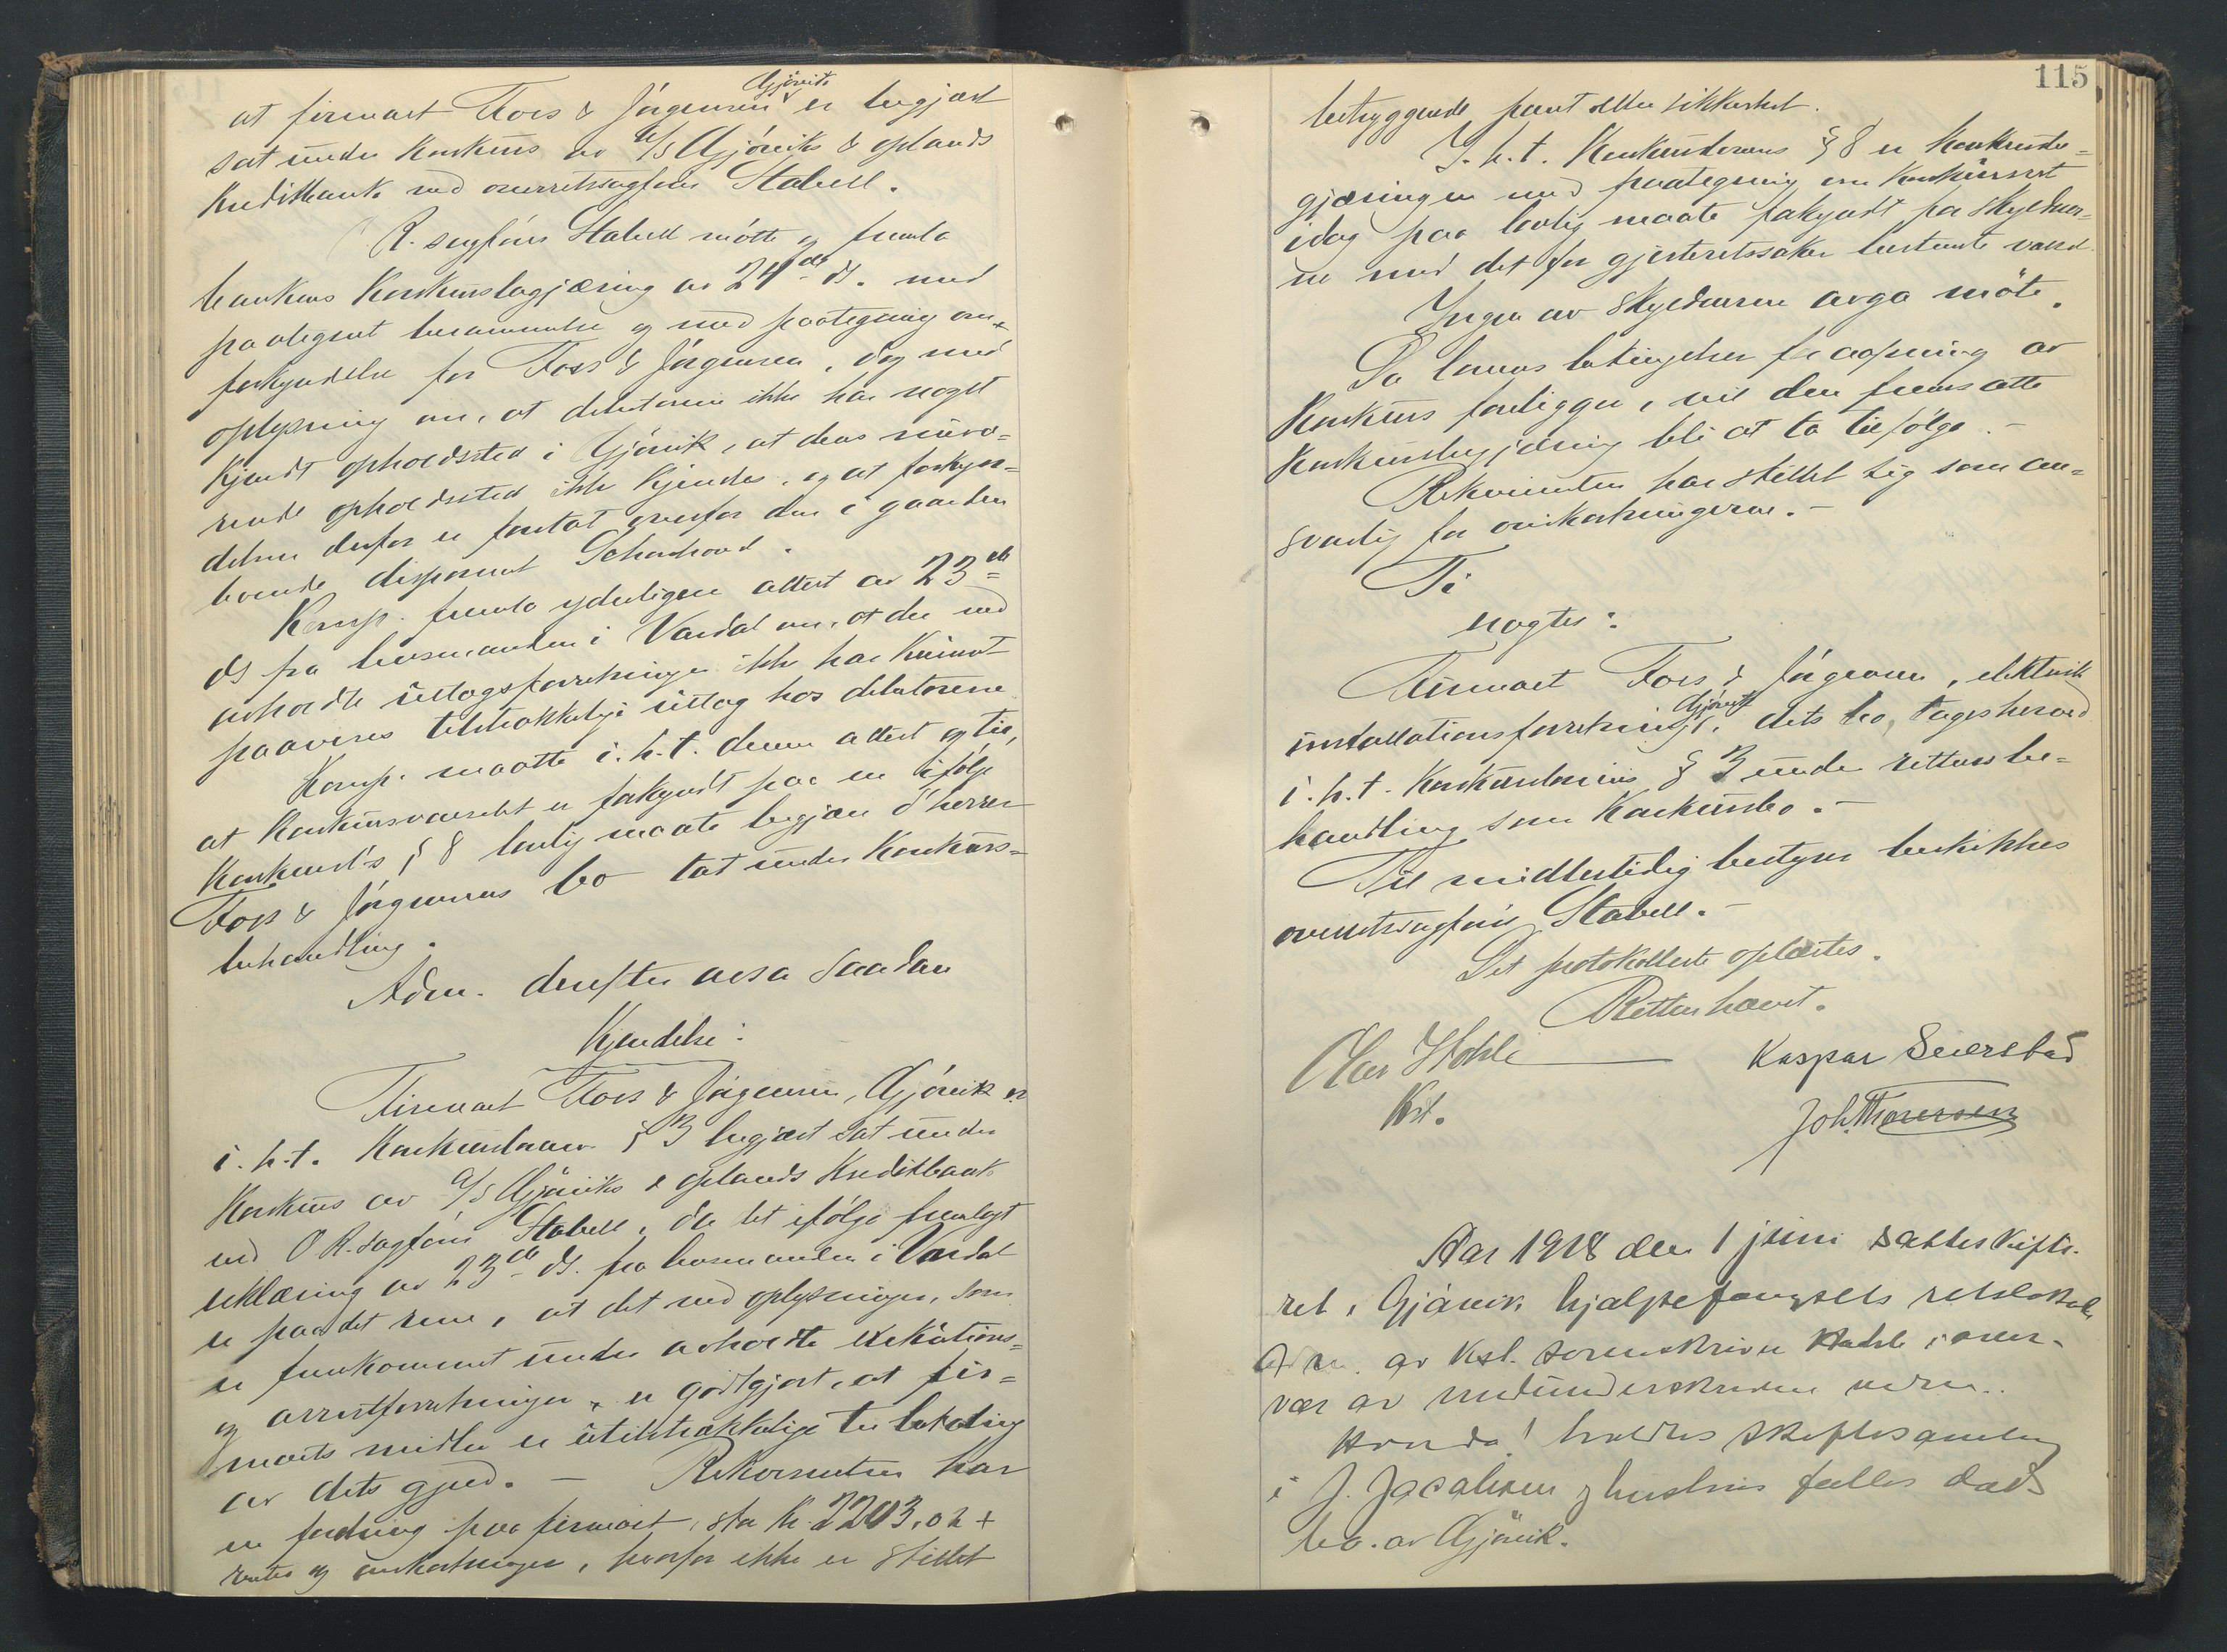 at firmaet Foss & Jörgensen Gjövik er begjært
sat under konkurs av A/S Gjöviks & oplands
Kreditbank ved overretssagförer Stabell.
R. sagförer Stabell mötte og fremla
bankens konkursbegjæring av 24de ds. med
paategnet berammelse og med paategning om
forkyndelse for Foss & Jörgensen, dog med
oplysning om, at debitorerne ikke har noget
kjendt opholdssted i Gjövik, at deres nuvæ=
rende opholdssted ikke kjendes, og at forkyn=
delsen derfor er foretat overfor den i gaarden
boende disponent
Komp. fremla yderligere attest av 23de
ds fra lensmanden i Vardal om, at der ved
avholdte utlagsforretninger ikke har kunnet
paavises tilstrækkelig utlag hos debitorerne.
Komp. maatte i. h. t. denne attest og til,
at konkursvarselet er forkyndt paa en ifölge
konkursl's § 8 lovlig maate begjære d'herrer
Foss & Jörgensens bo tat under konkurs=
behandling.
Adm. derefter avsa saadan
Kjendelse:
Firmaet Foss & Jörgensen, Gjövik er
i. h. t. konkursloven § 3 begjært sat under
konkurs av A/S Gjöviks & oplands Kreditbank
ved O.R.sagförer Stabell, da det ifölge fremlagt
erklæring av 23de ds. fra lensmanden i Vardal
er paa det rene, at det ved oplysninger, som
er fremkommet under avholdte exekutions=
og arrestforretninger, er godtgjort, at fir=
maets midler er utilstrækkelige til betaling
av dets gjæld. — Rekvirenten har
en fordring paa firmaet, stor kr. 2203,02 +
renter og omkostninger, hvorfor ikke er stillet
115
betryggende pant eller sikkerhet.
I. h. t. konkurslovens § 8 er konkursbe=
gjæringen med paategning om konkursret
idag paa lovlig maate forkyndt for skyldner=
ne med det for gjesteretssaker bestemte varsel.
Ingen av skyldnerne avga möte.
Da lovens betingelser for aapning av
konkurs foreligger, vil den fremsatte
konkursbegjæring bli at ta tilfölge. —
Rekvirenten har stillet sig som an=
svarlig for omkostningerne. —
Ti
eragtes:
Firmaet Foss & Jörgensen, elektrisk
installationsforretnings, Gjövik dets bo, tages herved
i. h. t. konkurslovens § 3 under rettens be=
handling som konkursbo. —
Til midlertidig bestyrer beskikkes
overretssagförer Stabell. —
Det protokollerte oplæstes.
Retten hævet.
Kst.
Kaspar Seierstad
Joh. Thoresen
Aar 1918 den 1 juni sattes skifte-
ret i Gjövik hjælpefængsels retslokale
Adm. av kst. sorenskriver i over-
vær av medunderskrevne vidner.
Hvorda! holdtes skiftesamling
i J. Jacobsen og hustrus fælles döds
bo. av Gjövik.